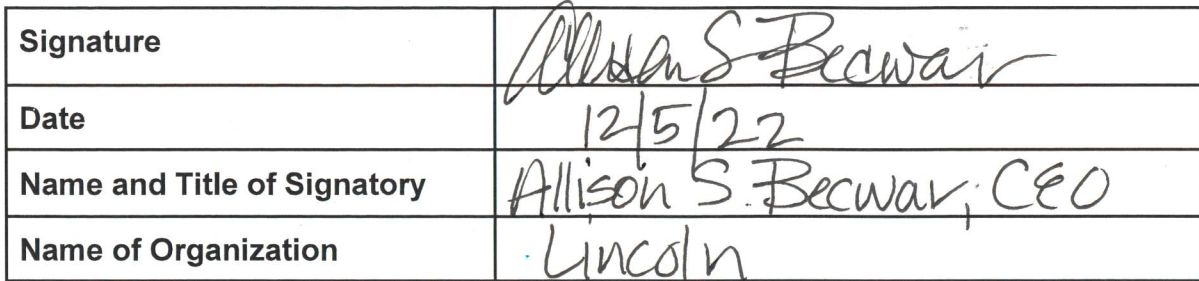 Signature Allison S Becwar
Date 12/5/22
Name and Title of Signatory Allison S. Becwar, CEO
Name of Organization Lincoln